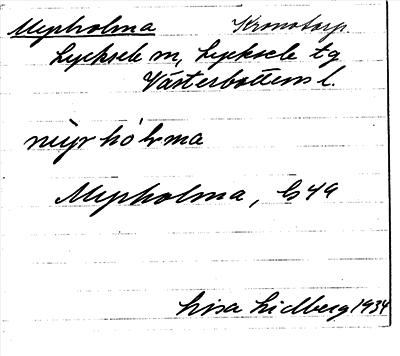 Myrholma Kronotorp
Lycksele sn, Lycksele tg
Västerbottens l.
Myrholma, G 49
Lisa Lidberg 1934